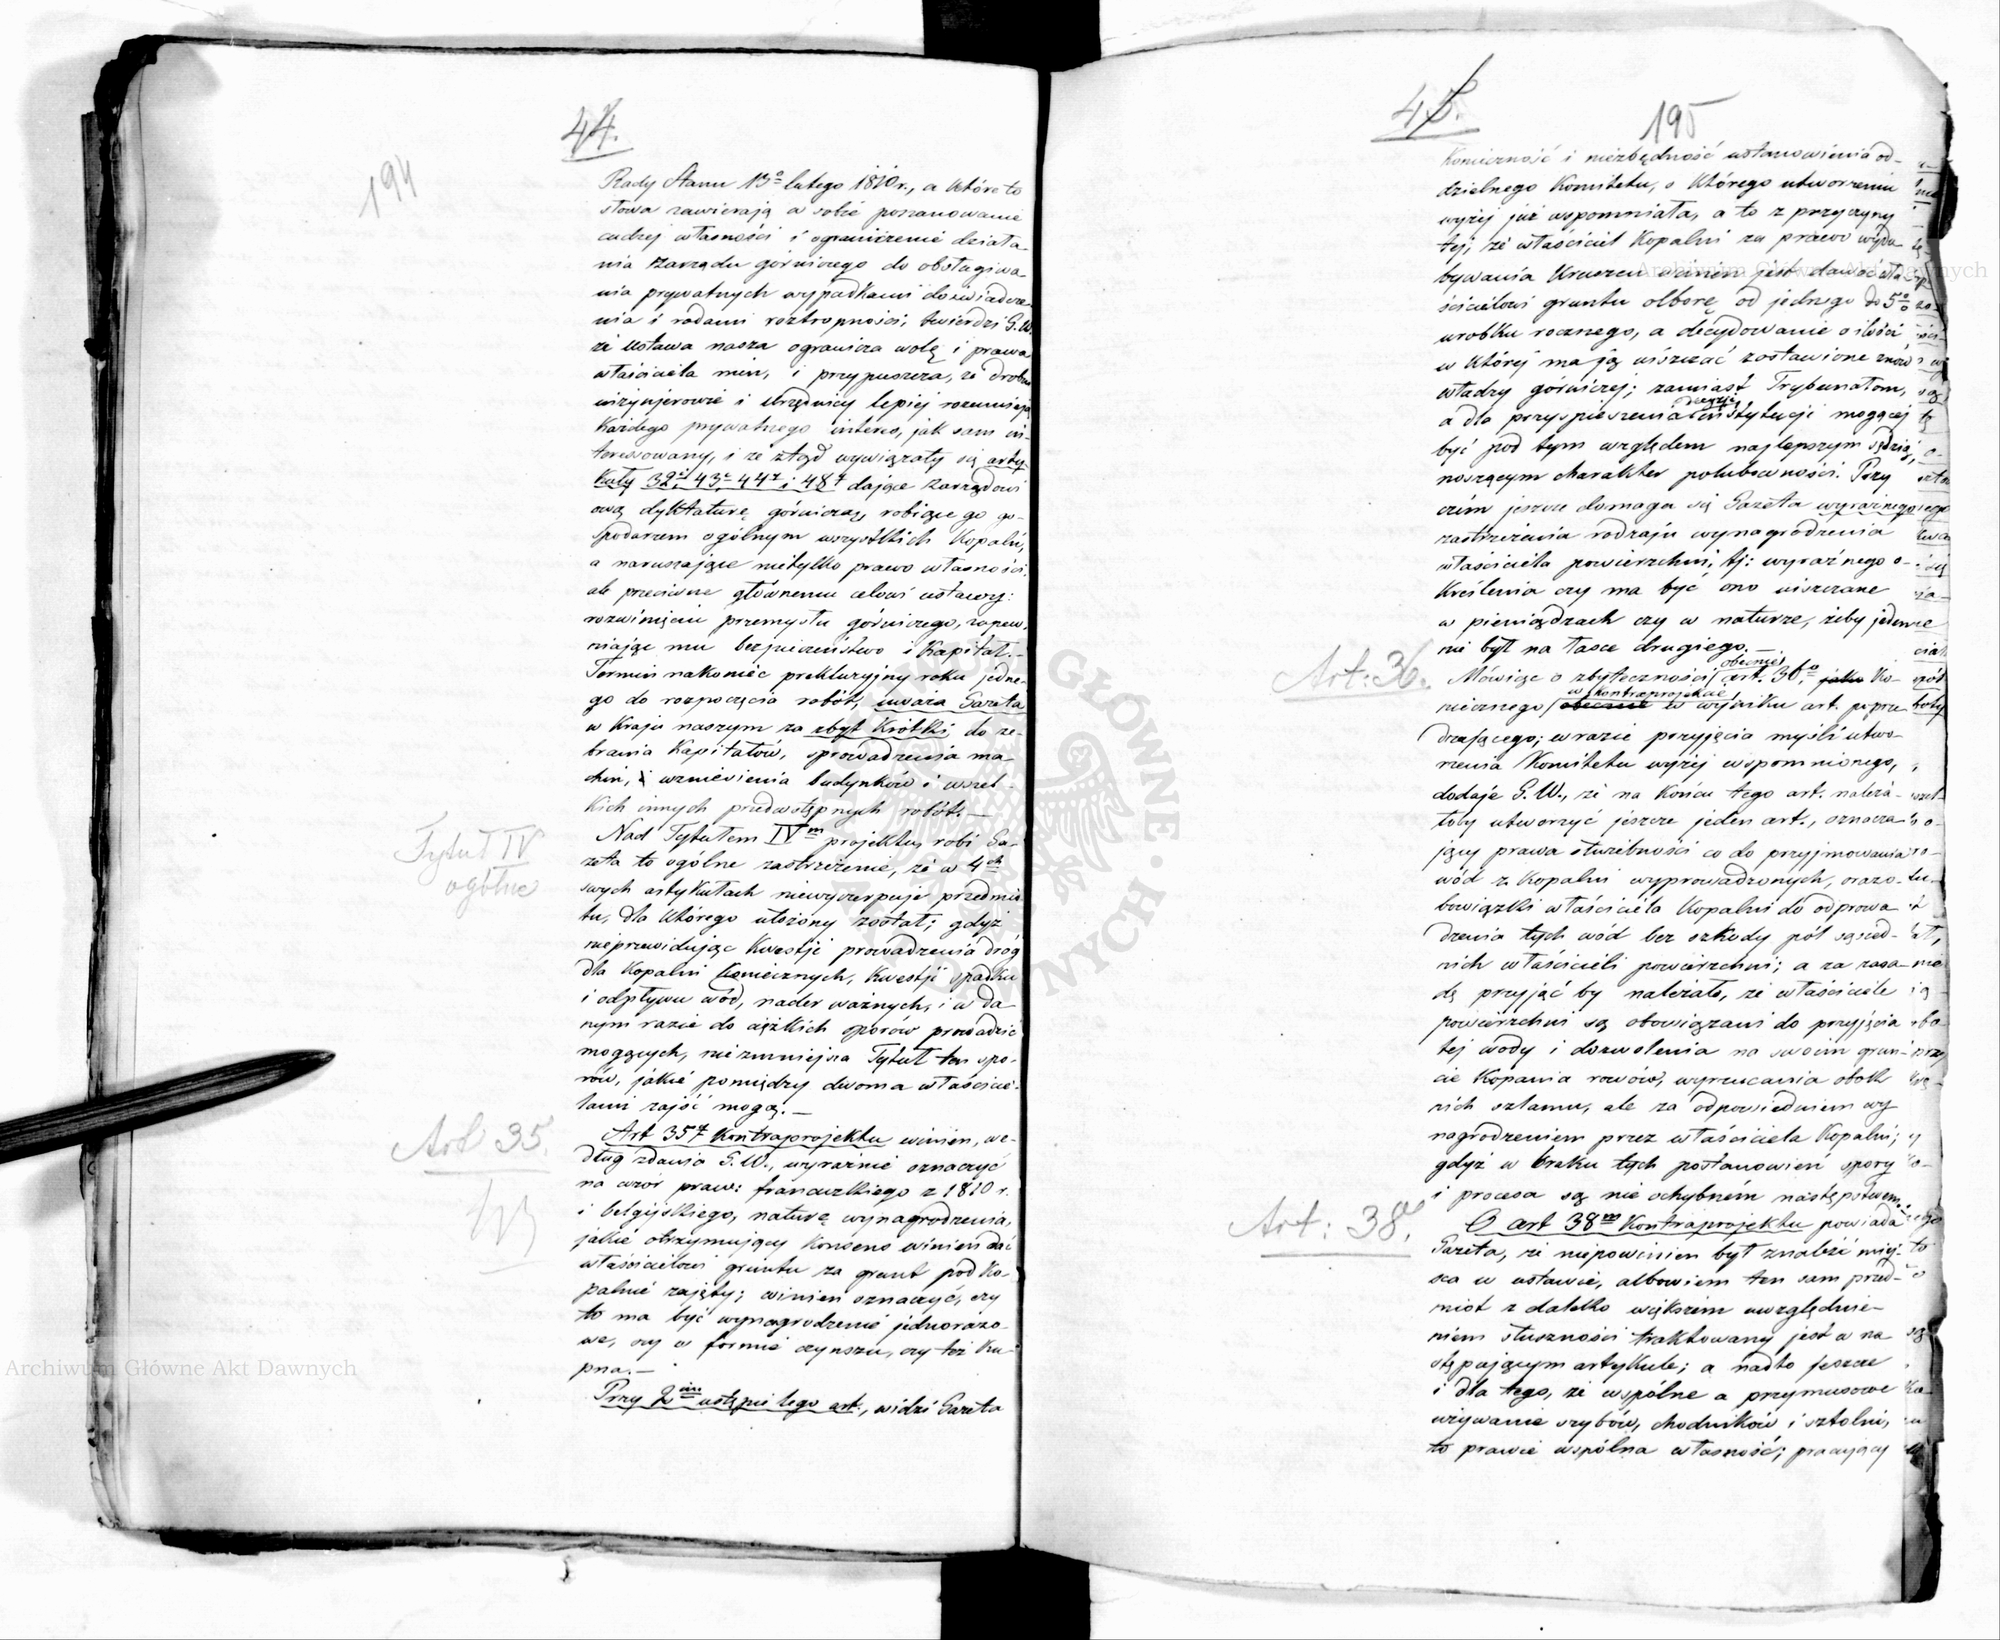 44.
194
Rady Stanu 13º lutego 1810 r., a które to
słowa zawierają w sobie poszanowanie
cudzej własności i ograniczenie działa-
nia Zarządu górniczego do obsługiwa-
nia prywatnych wypadkami doświadcze-
nia i radami roztropności; twierdzi G.W.
że Ustawa nasza ogranicza wolę i prawa
właściciela min, i przypuszcza, że drobni
inżynjerowie i Urzędnicy lepiej rozumieją
każdego prywatnego interes, jak sam in-
teresowany, i że ztąd wywiązały się arty-
kuły 32, 43, 44 i 48 dające Zarządowi
ową dyktaturę górniczą, robiące go go-
spodarzem ogólnym wszystkich Kopalń,
a naruszające nietylko prawo własności,
ale przeciwne głównemu celowi ustawy:
rozwinięciu przemysłu górniczego, zapew-
niając mu bezpieczeństwo i Kapitał.—
Termin nakoniec prekluzyjny roku jedne-
go do rozpoczęcia robót, uważa Gazeta
w Kraju naszym za zbyt Krótki do ze-
brania Kapitałów, sprowadzenia ma-
chin, wzniesienia budynków i wszel-
kich innych przedwstępnych robót.—
Tytuł IV
ogólne
Nad Tytułem IVm projektu, robi Ga-
zeta to ogólne zastrzeżenie, że w 4ch
swych artykułach niewyczerpuje przedmio-
tu, dla którego ułożony został; gdyż
nieprzewidując Kwestji prowadzenia dróg
dla Kopalni Koniecznych, Kwestji spadku
i odpływu wód, nader ważnych, i w da-
nym razie do ciężkich sporów prowadzić
mogących, niezmniejsza Tytuł ten spo-
rów, jakie pomiędzy dwoma właścicie-
lami zajść mogą.—
Art 35.
Art 35 Kontraprojektu winien, we-
dług zdania G.W., wyraźnie oznaczyć
na wzór praw: francuzkiego z 1810 r.
i belgijskiego, naturę wynagrodzenia,
jakie otrzymujący Konsens winien dać
właścicielowi gruntu za grunt pod Ko-
palnie zajęty; winien oznaczyć, czy
to ma być wynagrodzenie jednorazo-
we, czy w formie czynszu, czy też Ku-
pna.—
Przy 2im ustępie tego art., widzi Gazeta
45.
195
Konieczność i niezbędność ustanowienia od-
dzielnego Komitetu, o którego utworzeniu
wyżej już wspomniała, a to z przyczyny
tej, że właściciel Kopalni za prawo wydo-
bywania Kruszcu winien jest dawać wła-
ścicielowi gruntu olborę od jednego do 5%
urobku rocznego, a decydowanie o ilości
w której ma ją uiszczać zostawione znów
władzy górniczej; zamiast Trybunałom,
a dla przyspieszenia decyzji instytucji mogącej
być pod tym względem najlepszym sędzią,
noszącym charakter polubowności. Przy
czém jeszcze domaga się Gazeta wyraźnego
zastrzeżenia rodzaju wynagrodzenia
właściciela powierzchni, tj: wyraźnego o-
kreślenia czy ma być ono uiszczane
w pieniądzach czy w naturze, żeby jeden
nie był na łasce drugiego.—
Art: 36.
Mówiąc o zbyteczności obecnie art. 36º, jako Ko-
niecznego w kontraprojekcie obecnie w wyniku art. poprze-
dzającego; w razie przyjęcia myśli utwo-
rzenia Komitetu wyżej wspomnionego,
dodaje G.W., że na Końcu tego art. należa-
łoby utworzyć jeszcze jeden art., oznacza-
jący prawa służebności co do przyjmowania
wód z Kopalni wyprowadzonych, oraz o-
bowiązki właściciela Kopalni do odprowa-
dzenia tych wód bez szkody pól sąsied-
nich właścicieli powierzchni; a za zasa-
dę przyjąć by należało, że właściciele
powierzchni są obowiązani do przyjęcia
tej wody i dozwolenia na swoim grun-
cie Kopania rowów, wyrzucania obok
nich szlamu, ale za odpowiedniem wy-
nagrodzeniem przez właściciela Kopalni;
gdyż w braku tych postanowień spory
i procesa są nie ochybném następstwem.
Art: 38.
O art 38m Kontraprojektu powiada
Gazeta, że niepowinien był znaleźć miej-
sca w ustawie, albowiem ten sam przed-
miot z daleko większém uwzględnie-
niem słuszności traktowany jest w na-
stępującym artykule; a nadto jeszcze
i dla tego, że wspólne a przymusowe
używanie szybów, chodników i sztolni,
to prawie wspólna własność; pracujący
Archiwum Główne Akt Dawnych